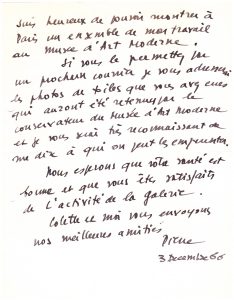 suis heureux de pouvoir montrer à
Paris un ensemble de mon travail
au musée d'Art Moderne.
Si vous le permettez par
un prochain courrier je vous adresserai
les photos de toiles que vous avez eues
qui auront été retenues par le
conservateur du Musée d'Art Moderne
et je vous serai très reconnaissant de
me dire à qui on peut les emprunter.
Nous esperons que vôtre santé est
bonne et que vous êtes satisfaits
de l'activité de la galerie.
Colette et moi vous envoyons
nos meilleures amitiés
3 Decembre 66